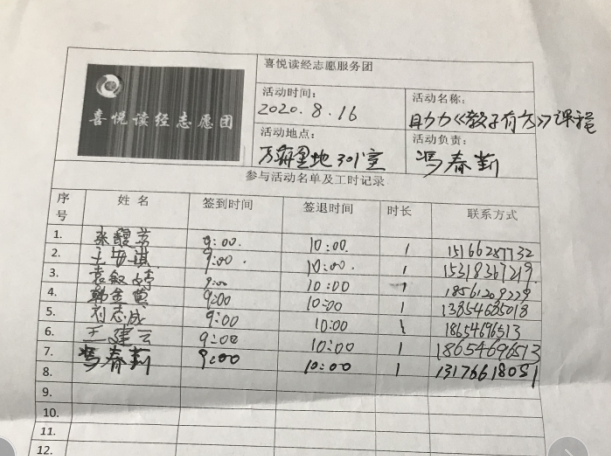 喜悦读经志愿团
喜悦读经志愿服务团
活动时间:
2020.8.16
活动名称:
助力《教子有方》课程
活动地点:
301室
活动负责:
冯春勤
参与活动名单及工时记录
序号 姓名 签到时间 签退时间 时长 联系方式
1. 9:00. 10:00. 1 15166287732
2. 9:00. 10:00. 1 15319367219
3. 9:00 10:00 1 18561209229
4. 韩金 9:00 10:00 1 13854685018
5. 刘志成 9:00 10:00 1 18654696513
6. 王建云 9:00 10:00 1 18654696513
7. 冯春勤 9:00 10:00 1 13176618051
8.
9.
10.
11.
12.